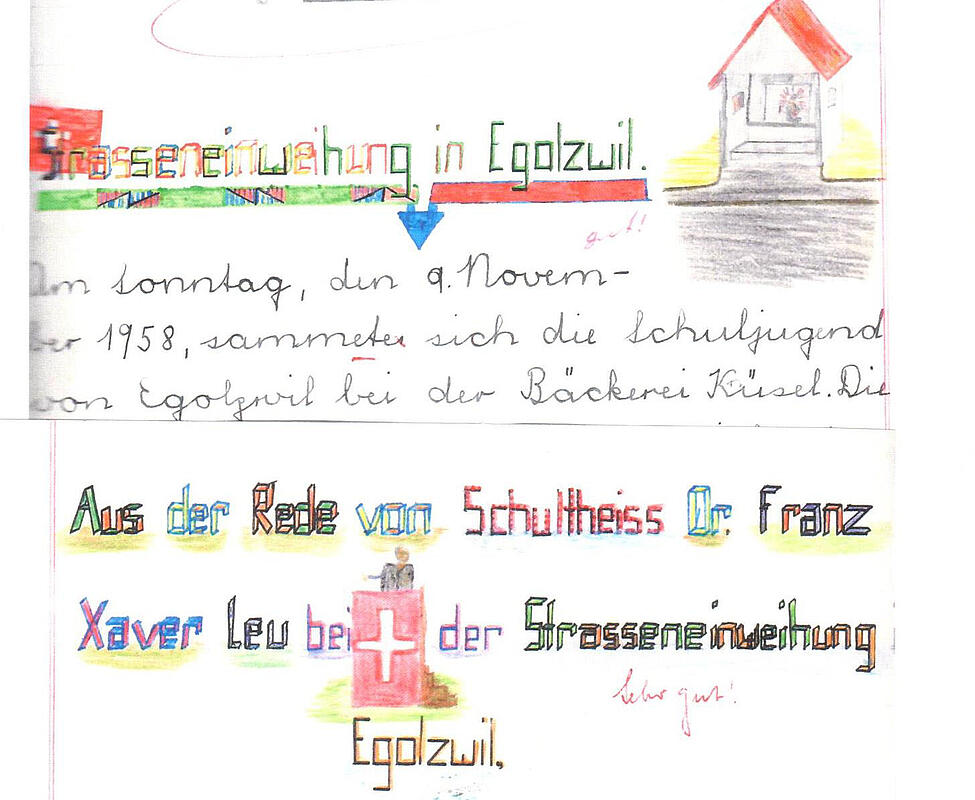 Strasseneinweihung in Egolzwil.
gut!
Am Sonntag, den 9. Novem-
ber 1958, sammeten sich die Schuljugend
von Egolzwil bei der Bäckerei Küsel. Die
Aus der Rede von Schultheiss Dr. Franz
Xaver Leu bei der Strasseneinweihung
Sehr gut!
Egolzwil.